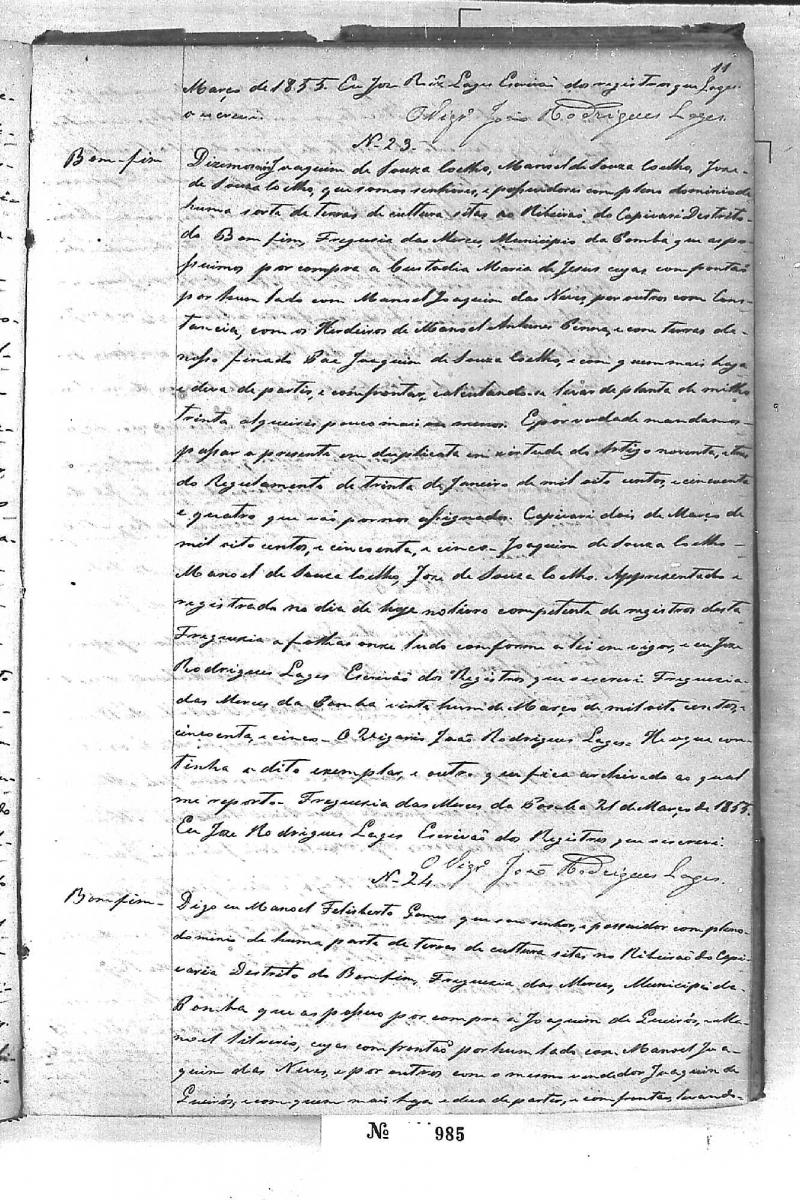 11
Março de 1855. Eu Joze Roiz Lages Escrivão dos registros que
o escrevi. O Vigro João Rodrigues Lages.
N. 23.
Bom-fim
Dizemos nós Joaquim de Souza Coelho, Manoel de Souza Coelho, Joze-
de Souza Coelho, que somos senhores, e possuidores com pleno dominio de
huma sorte de terras de cultura sitas no Ribeirão do Capivari Destrito-
do Bom fim, Freguezia das Merces, Municipio da Pomba que as pos
suimos por compra a Custodia Maria de Jesus cujas confrontão
por hum lado com Manoel Joaquim das Neves, por outros com Cons-
tancia, com os Herdeiros de Manoel Antunes Penna, e com terras de-
nosso finado Pae Joaquim de Souza Coelho, e com quem mais haja
e deva de partir, e confrontar, calculando-se levar de planta de milho
trinta alqueires pouco mais ou menos. E por verdade mandamos-
passar a presente em duplicata em virtude do Artigo noventa, e tres
do Regulamento de trinta de Janeiro de mil oito centos, e cincoenta
e quatro que vás por nos assignados. Capivari dois de Março de
mil oito centos, e cincoenta, e cinco. Joaquim de Souza Coelho-
Manoel de Souza Coelho, Joze de Souza Coelho. Appresentado e
registrado no dia de hoje no livro competente de registros desta
Freguezia a folhas onze tudo conforme a lei em vigor, e eu Joze
Rodrigues Lages Escrivão dos Registros que o escrevi Freguezia-
das Merces da Pomba vinte hum de Março de mil oito centos, e
cincoenta, e cinco- O Vigario João Rodrigues Lages. He o que con-
tinha o dito exemplar, e outro que fica archivado ao qual
me reporto- Freguezia das Merces da Pomba 21 de Março de 1855.
Eu Joze Rodrigues Lages Escrivão dos Registros que o escrevi.
O Vigro João Rodrigues Lages.
N. 24
Bom-fim-
Digo eu Manoel Felisberto Gomes que sou senhor, e possuidor com pleno-
dominio de huma parte de terras de cultura sitas no Ribeirão do Capi-
varia Destrito do Bom fim, Freguezia das Merces, Municipio da-
Pomba que as possuo por compra a Joaquim de Queirós, e Ma-
noel Silverio, cujas confrontão por hum lado com Manoel Joa-
quim das Neves, e por outros com o mesmo vendedor Joaquim de
Queirós, e com quem mais haja e deva de partir, e confrontar, levando-
No 985